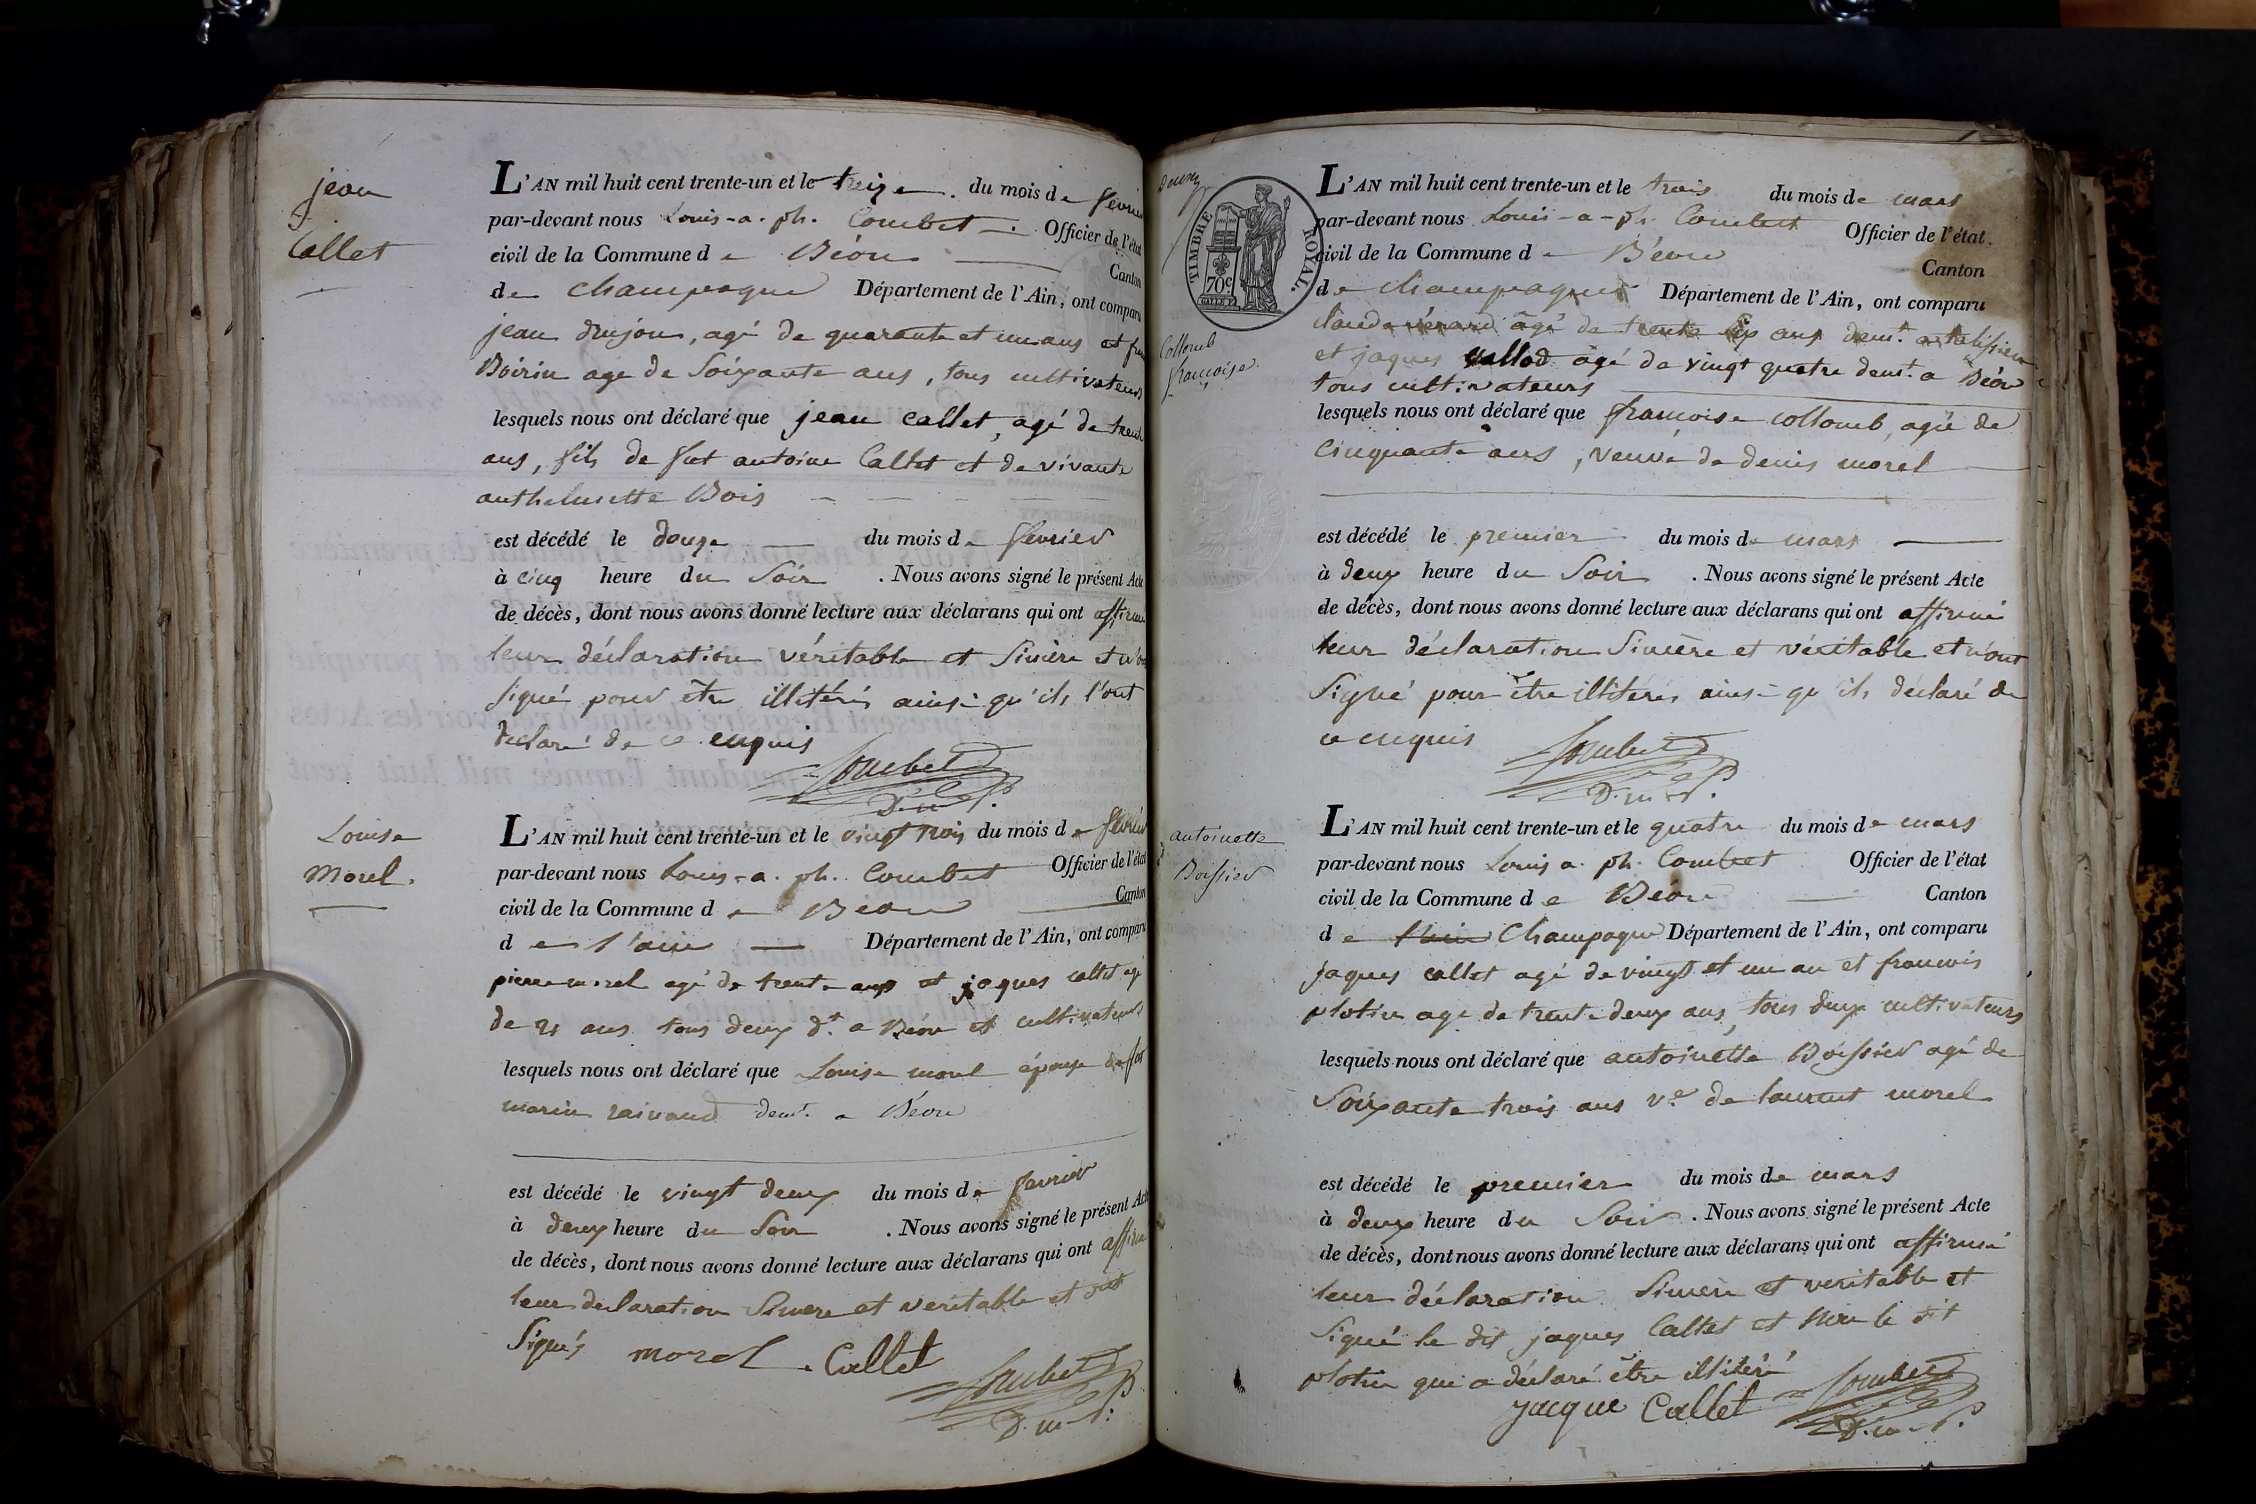 jean
Callet
L'AN mil huit cent trente-un et le treize du mois de fevrier
par-devant nous Louis-a. ph. Combet Officier de l'état
civil de la Commune de Béon Canton
de Champagne Département de l'Ain, ont comparu
jean drujon, agé de quarante et un ans et
Boirin age de Soixante ans, tous cultivateurs
lesquels nous ont déclaré que jean callet, agé de trente
ans, fils de fut antoine Callet et de vivante
anthelmette Bois
est décédé le douze du mois de fevrier
à cinq heure du Soir . Nous avons signé le présent Acte
de décès, dont nous avons donné lecture aux déclarans qui ont affirmé
leur déclaration véritable et Sincère et n'ont
signé pour être illitérés ainsi qu'ils l'ont
déclaré de ce enquis
Combet
D. m. P.
Louise
Morel.
L'AN mil huit cent trente-un et le vingt trois du mois de février
par-devant nous Louis-a. ph. Combet Officier de l'état
civil de la Commune de Béon Canton
de l'ain Département de l'Ain, ont comparu
pierre morel agé de trente ans et jaques callet agé
de 21 ans tous deux dt a Béon et cultivateurs
lesquels nous ont déclaré que Louise morel épouse de
marin raivaud demt. a Béon
est décédé le vingt deux du mois de fevrier
à deux heure du Soir . Nous avons signé le présent Acte
de décès, dont nous avons donné lecture aux déclarans qui ont affirmé
leur declaration Sincere et veritable et ont
Signés morel Callet
Combet
D. m. P.
TIMBRE ROYAL.
70c
Collomb
françoise
L'AN mil huit cent trente-un et le trois du mois de mars
par-devant nous Louis-a-ph. Combet Officier de l'état.
civil de la Commune de Béon Canton
de Champagne Département de l'Ain, ont comparu
Claude âgé de trente six ans demt. a talissieu
et jaques vallod âgé de vingt quatre demt. a Béon
tous cultivateurs
lesquels nous ont déclaré que françoise collomb, agée de
cinquante ans, veuve de denis morel
est décédé le premier du mois de mars
à deux heure du Soir . Nous avons signé le présent Acte
de décès, dont nous avons donné lecture aux déclarans qui ont affirmé
leur déclaration Sincère et véritable et n'ont
Signé pour être illitérés ainsi qu'ils déclaré de
ce enquis
Combet
D. m. P.
antoinette
Boissier
L'AN mil huit cent trente-un et le quatre du mois de mars
par-devant nous Louis a. ph. Combet Officier de l'état
civil de la Commune de Béon Canton
de l'ain Champagne Département de l'Ain, ont comparu
jaques callet agé de vingt et un an et francois
plotin age de trente deux ans, tous deux cultivateurs
lesquels nous ont déclaré que antoinette Boissier agé de
Soixante trois ans ve de laurent morel
est décédé le premier du mois de mars
à deux heure du Soir . Nous avons signé le présent Acte
de décès, dont nous avons donné lecture aux déclarans qui ont affirmé
leur déclaration Sincère et veritable et
Signé le dit jaques Callet et non le dit
plotin qui a déclaré être illitéré
jacque Callet Combet
D. m. P.